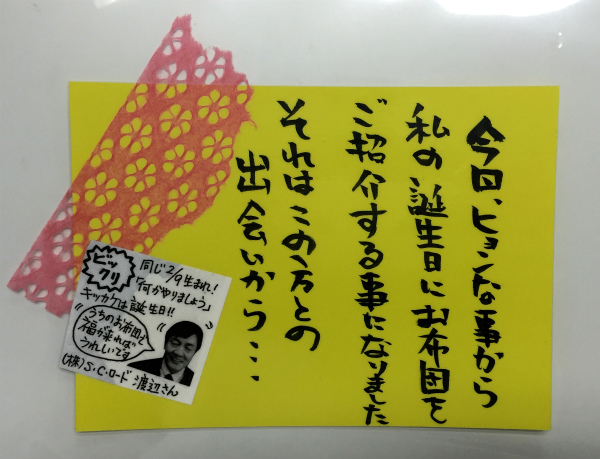 今回、ヒョンな事から
私の誕生日にお布団を
ご紹介する事になりました
それはこの方との
出会いから・・・
ビックリ
同じ2/9生まれ!
「何かやりましょう」
キッカケは誕生日!!
うちのお布団で
福が来れば
うれしいです
(株)S・C・ロード 渡辺さん